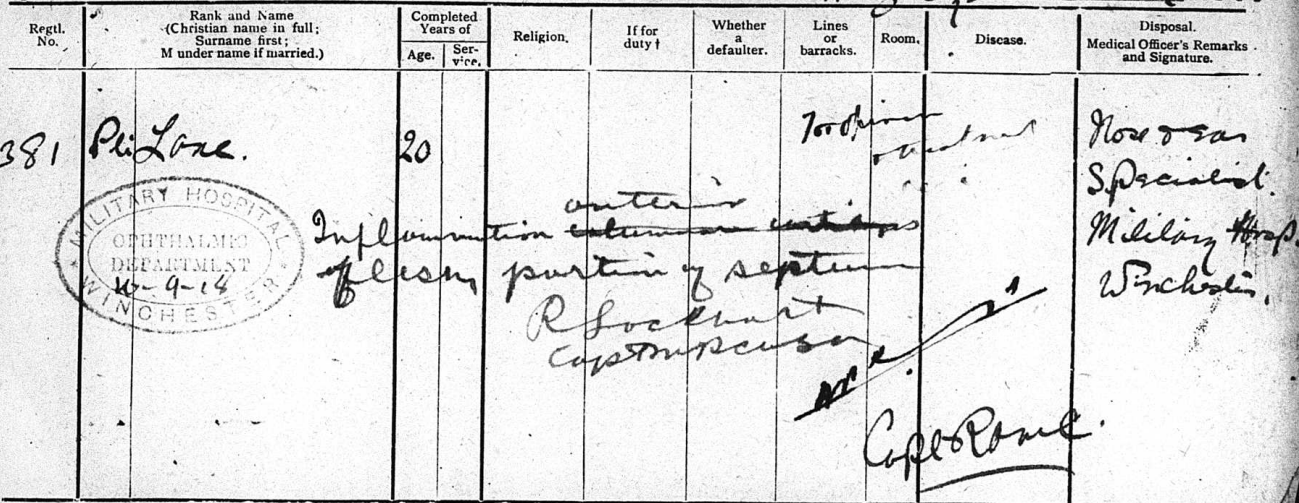 Regtl. No.
Rank and Name (Christian name in full; Surname first; M under name if married.)
Completed Years of
Age.
Ser-vice.
Religion.
If for duty †
Whether a defaulter.
Lines or barracks.
Room.
Disease.
Disposal. Medical Officer's Remarks and Signature.
381
Pte Lane.
20
For opinion
& treatment
Nose & Ear
Specialist.
Military Hosp.
Winchester.
MILITARY HOSPITAL
OPHTHALMIC
DEPARTMENT
-9-18
WINCHESTER
anterior
Inflammation
fleshy portion of septum
R Lockhart
Capt
Capt RAMC.